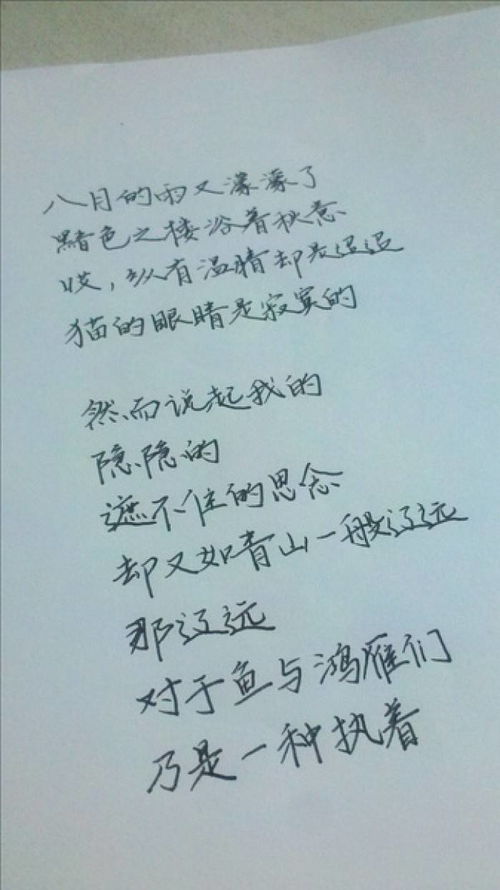 八月的雨又濛濛了
黯色之楼浴着秋意
哎，纵有温晴却是迢迢
猫的眼睛是寂寞的
然而说起我的
隐隐的
遮不住的思念
却又如青山一般辽远
那辽远
对于鱼与鸿雁们
乃是一种执着